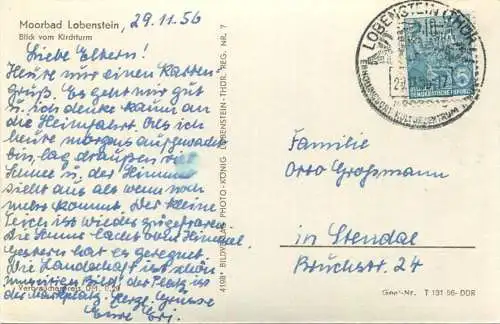 Moorbad Lobenstein, 29.11.56
Blick vom Kirchturm
Liebe Eltern!
Heute nur einen Karten-
gruß. Es geht mir gut
u. ich denke kaum an
die Heimfahrt. Als ich
heute morgens aufgewacht
bin, lag draußen
u. der Himmel
sieht aus als wenn noch
mehr kommt. Der kleine
Teich ist wieder zugefroren
Die Sonne lacht vom Himmel
Gestern hat es geregnet.
Die Landschaft ist schön
Bild der Platz ist
der Marktplatz. Herzl. Grüsse
Eure
Verbraucherpreis DM
4198* BILDVERLAG PHOTO-KÖNIG LOBENSTEIN-THÜR. REG. NR. 7
LOBENSTEIN (THÜR)
29.
DEMOKRATISCHE REPUBLIK
Familie
Otto Großmann
in Stendal
Bruchstr. 24
Gen.-Nr. T 191 56-DDR